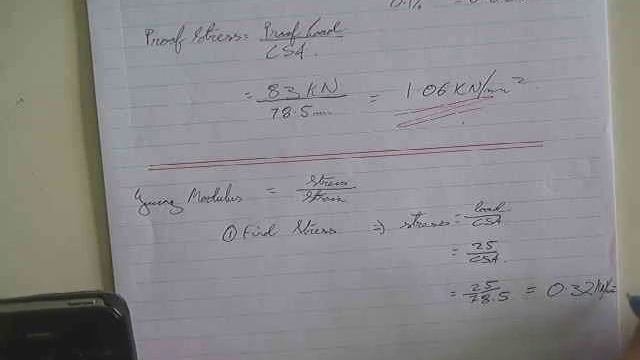 0.1%
Proof Stress = Proof Load
CSA.
= 83 KN = 1.06 KN/mm²
78.5mm
Youngs Modulus = Stress
Strain
① Find Stress ⇒ stress = load
CSA
= 25
CSA.
= 25 = 0.32
78.5